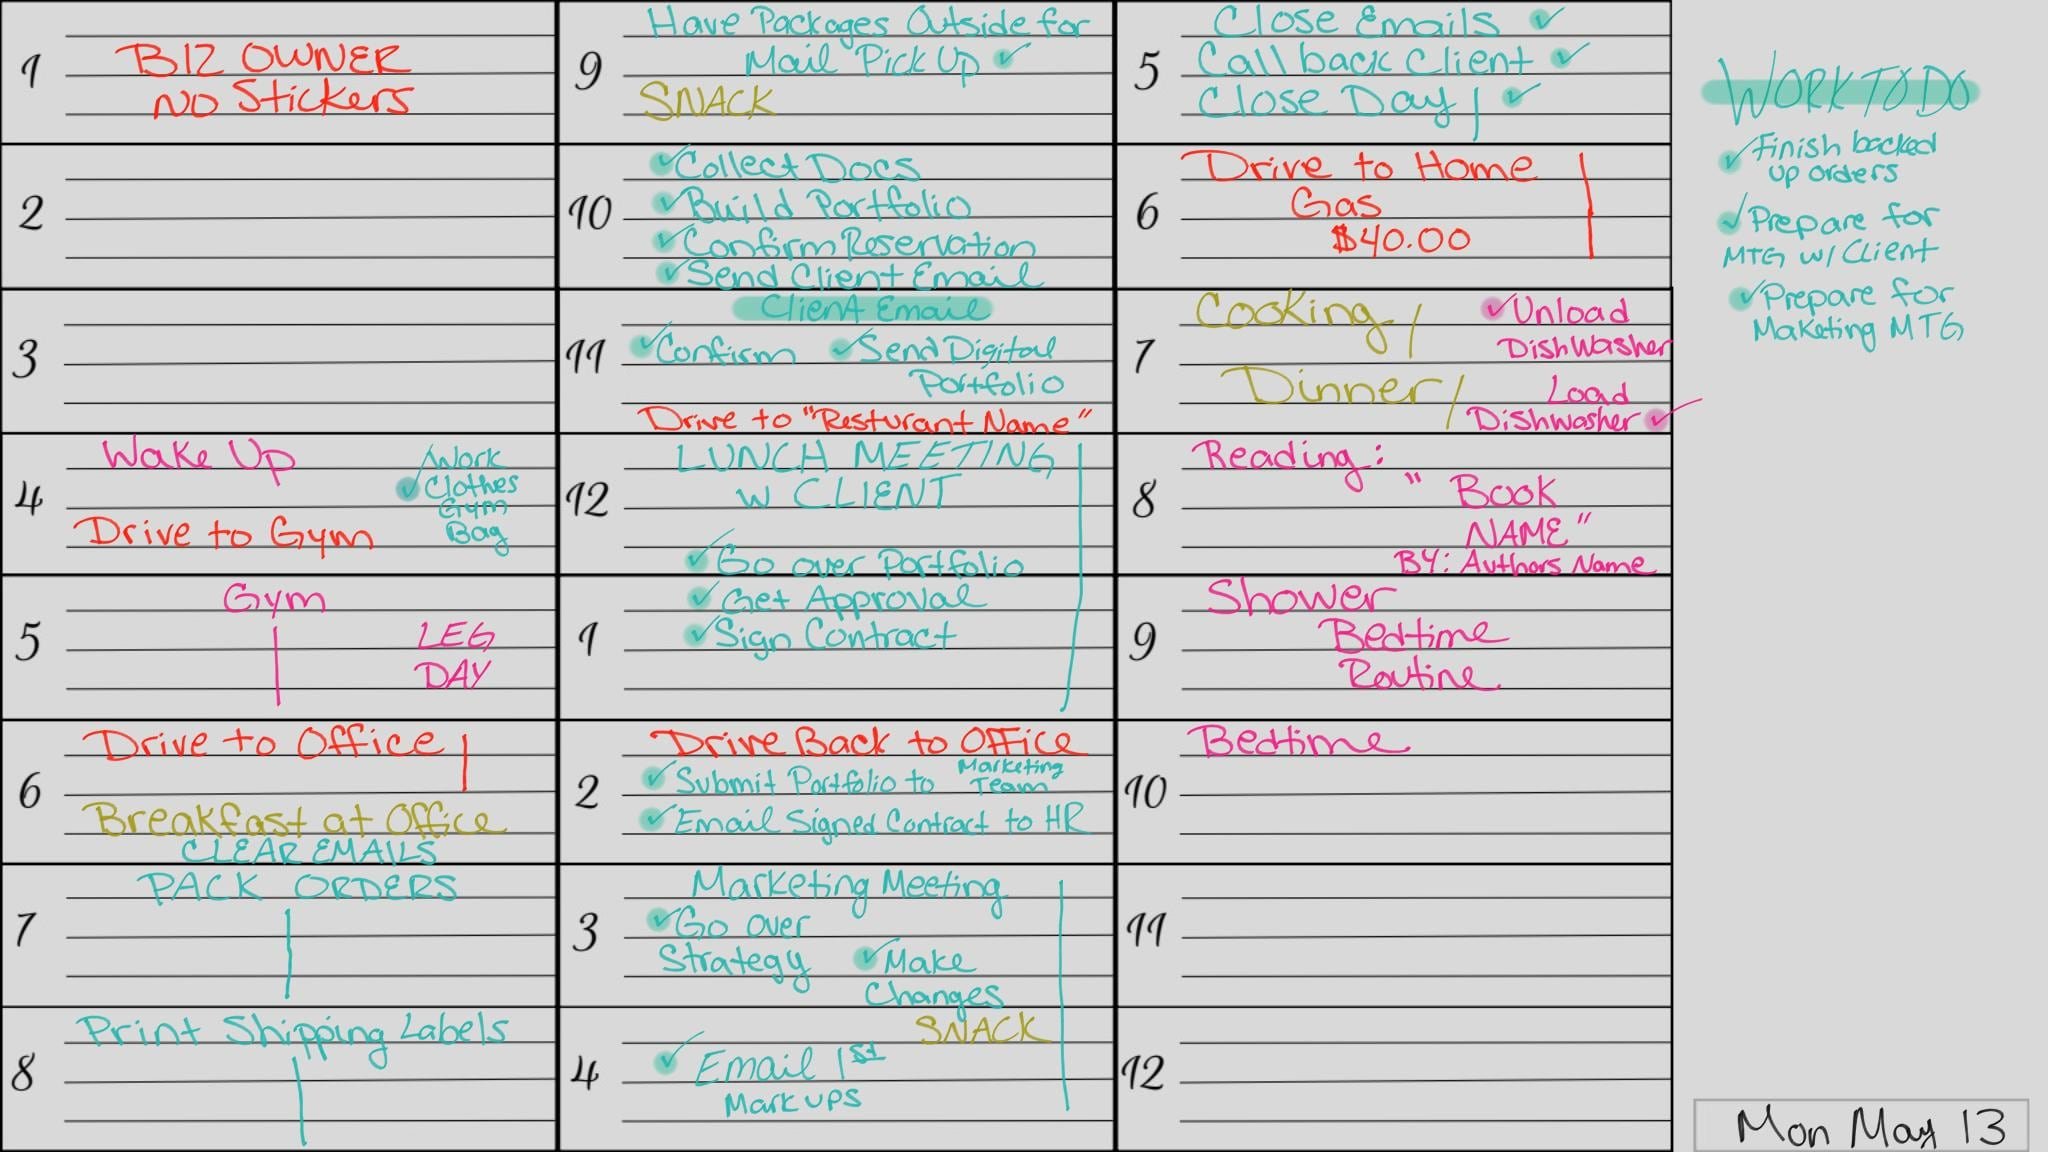 1
BIZ OWNER
NO Stickers
2
3
4
Wake Up
Work
Clothes
Gym
Bag
Drive to Gym
5
Gym
LEG
DAY
6
Drive to Office
Breakfast at Office
CLEAR EMAILS
7
PACK ORDERS
8
Print Shipping Labels
9
Have Packages Outside for
Mail Pick Up
SNACK
10
Collect Docs
Build Portfolio
Confirm Reservation
Send Client Email
11
Client Email
Confirm
Send Digital
Portfolio
Drive to "Resturant Name"
12
LUNCH MEETING
w CLIENT
Go over Portfolio
1
Get Approval
Sign Contract
2
Drive Back to Office
Submit Portfolio to Marketing
Team
Email Signed Contract to HR
3
Marketing Meeting
Go over
Strategy
Make
Changes
4
SNACK
Email 1st
Mark ups
5
Close Emails
Call back Client
Close Day
6
Drive to Home
Gas
$40.00
7
Cooking
Unload
DishWasher
Dinner
Load
Dishwasher
8
Reading:
"Book
NAME"
BY: Authors Name
9
Shower
Bedtime
Routine
10
Bedtime
11
12
WORK TO DO
Finish backed
up orders
Prepare for
MTG w/ Client
Prepare for
Maketing MTG
Mon May 13